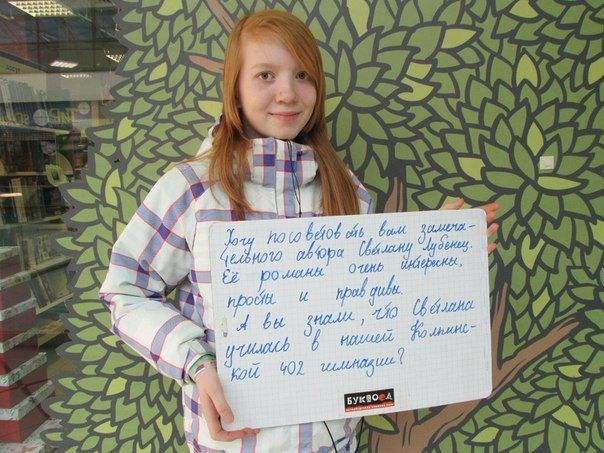 Хочу посоветовать вам замеча-
тельного автора Светлану Лубенец.
Её романы очень интересны,
просты и правдивы.
А вы знали, что Светлана
училась в нашей Колпинс-
кой 402 гимназии?
БУКВОЕД